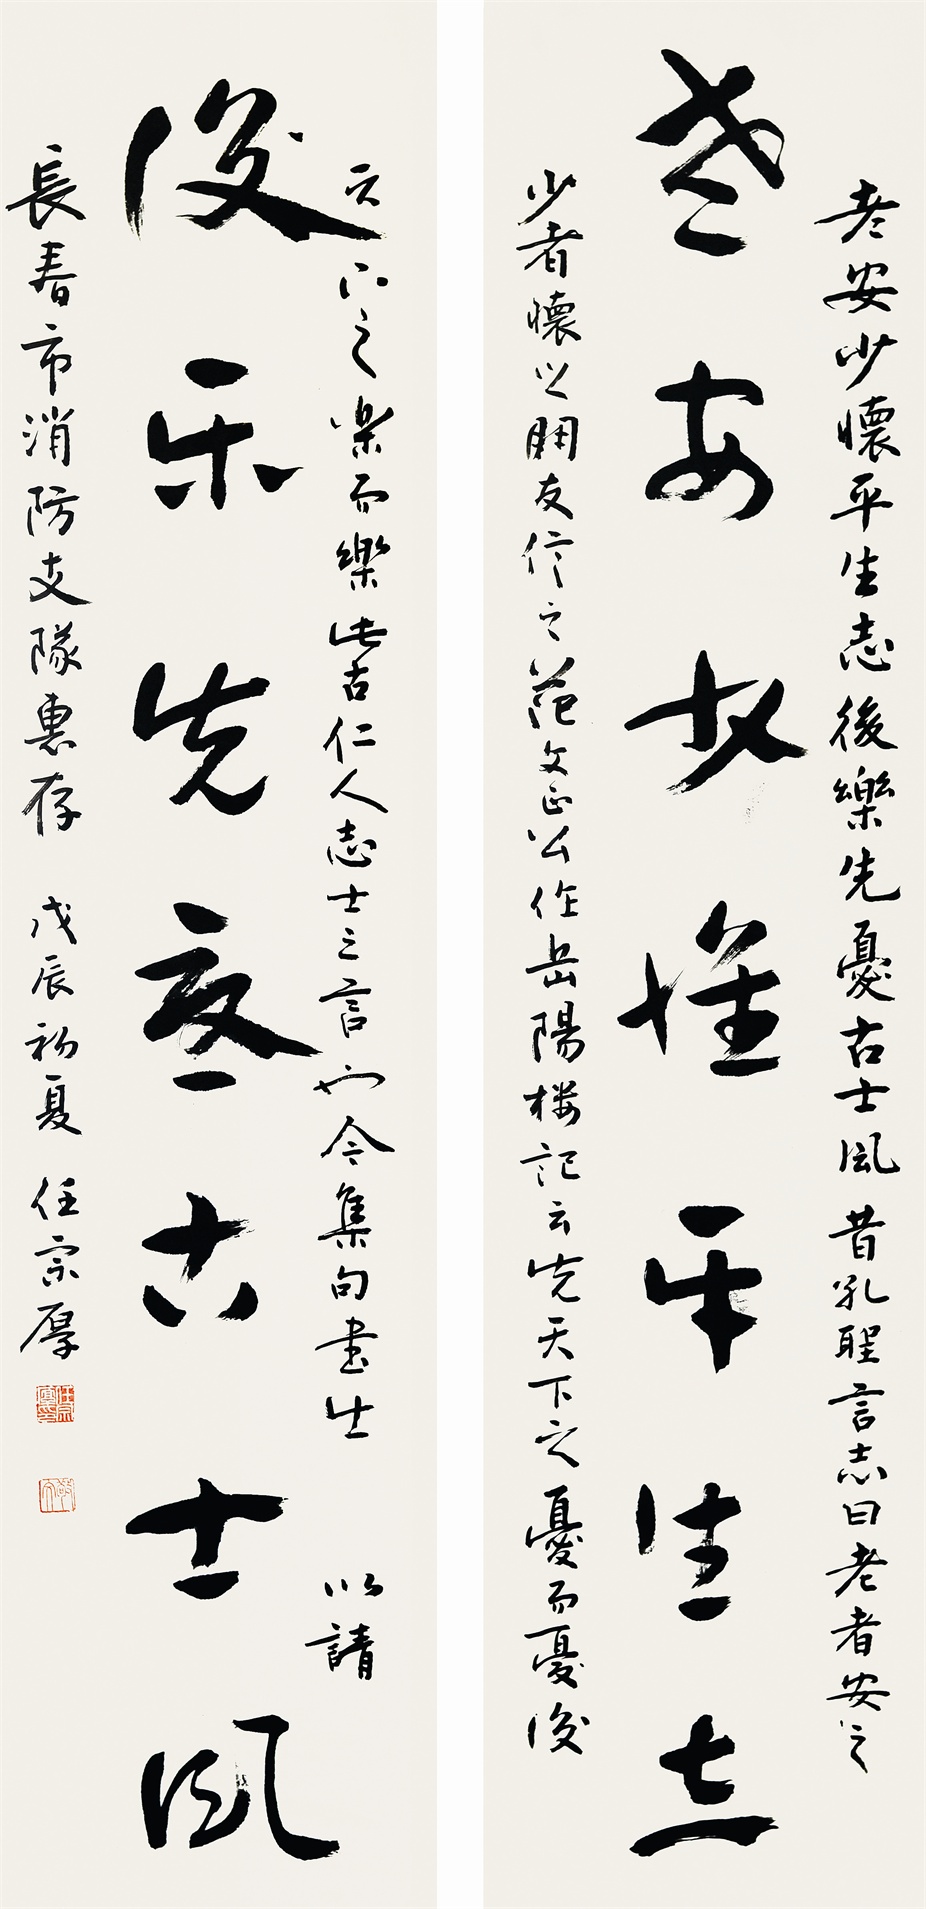 老安少懷平生志
後樂先憂古士風
老安少懷平生志後樂先憂古士風昔孔聖言志曰老者安之
少者懷之朋友信之范文正公作岳陽樓記云先天下之憂而憂後
天下之樂而樂此古仁人志士之言也今集句書此 以請
長春市消防支隊惠存 戊辰初夏 任宗厚